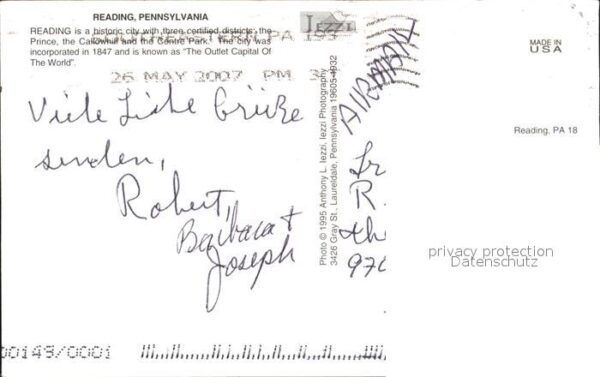 READING, PENNSYLVANIA
READING is a historic city with three certified districts: the
Prince, the Callowhill and the Centre Park. The city was
incorporated in 1847 and is known as "The Outlet Capital Of
The World".
SOUTHEASTERN PA 193
26 MAY 2007 PM
Iezzi
MADE IN
USA
Reading, PA 18
Photo © 1995 Anthony L. Iezzi, Iezzi Photography
3426 Gray St., Laureldale, Pennsylvania 19605-4932
AIRMAIL
Viele Liebe Grüße
senden,
Robert,
Barbara +
Joseph
R.
970
privacy protection
Datenschutz
00149/0001